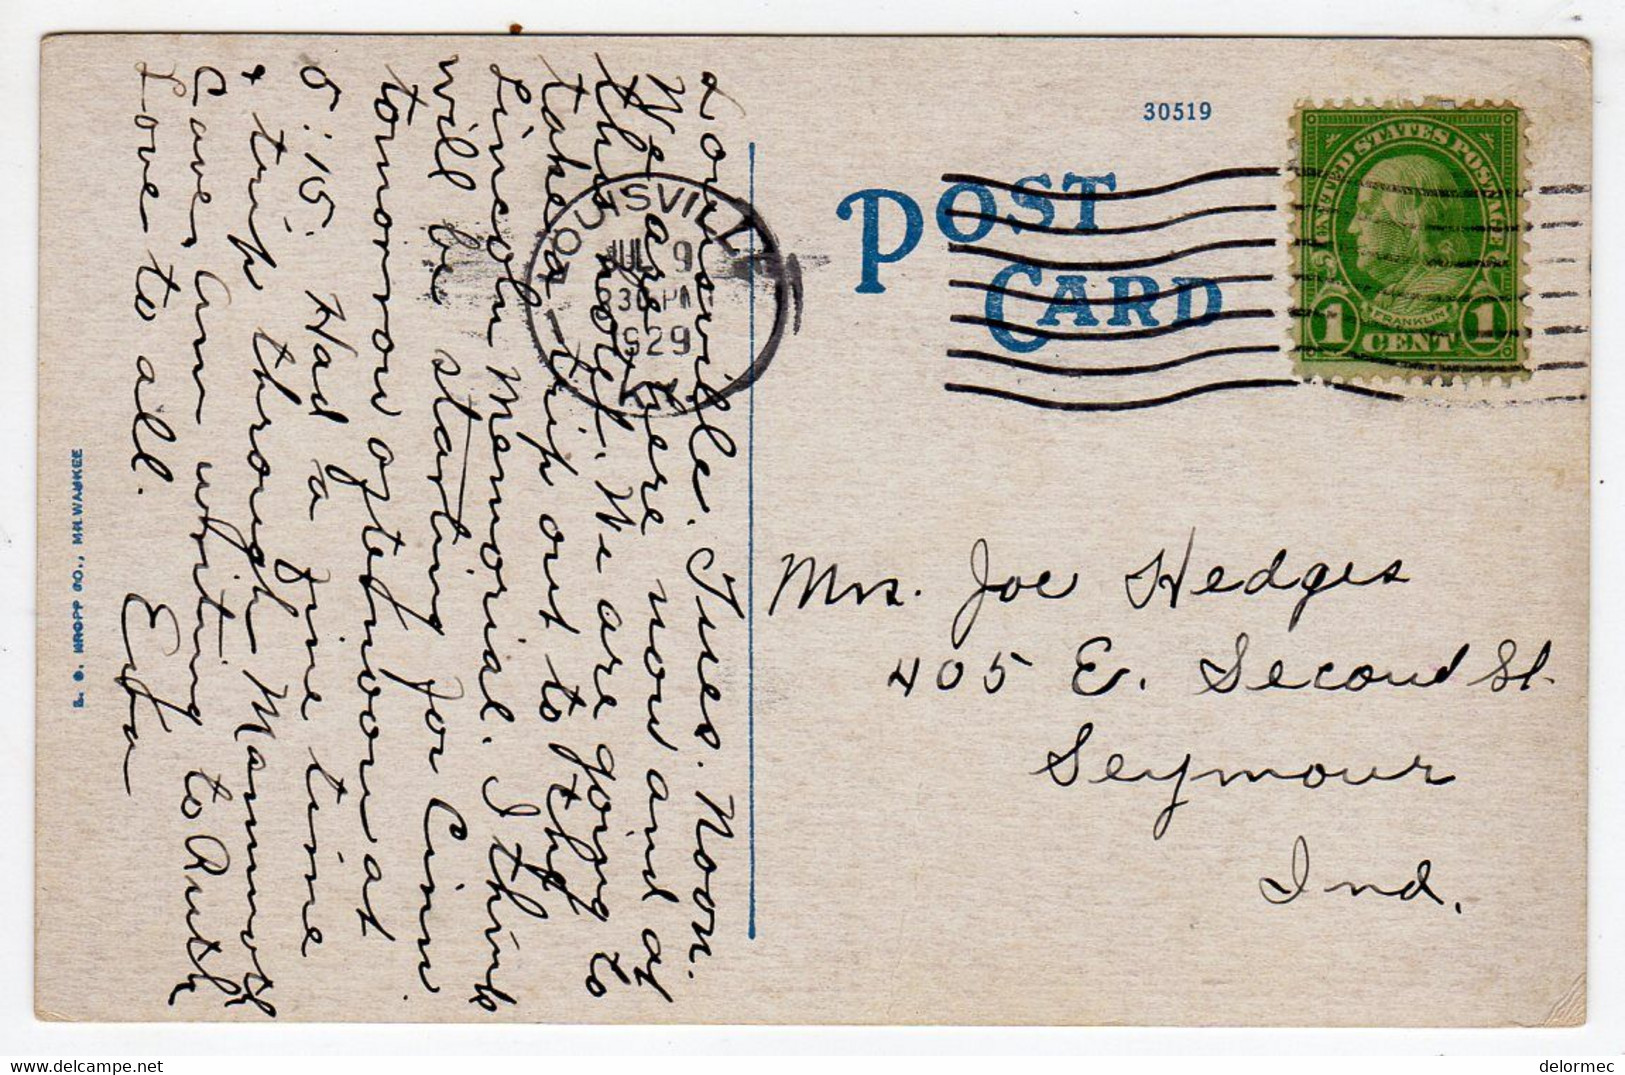 Louisville. Tues. Noon.
We are here now and at
the noted. We are going to
take a trip out to the
Lincoln Memorial. I think
will be starting for Cinn.
tomorrow afternoon at
5:15. Had a fine time
& trip through Mammoth
Cave. Am writing to Ruth
Love to all.
Eva
LOUISVILLE
JUL 9
30 PM
1929
KY.
30519
POST
CARD
UNITED STATES POSTAGE
FRANKLIN
1 CENT 1
Mrs. Joe Hedges
405 E. Second St.
Seymour
Ind.
E. C. KROPP CO., MILWAUKEE
delormec